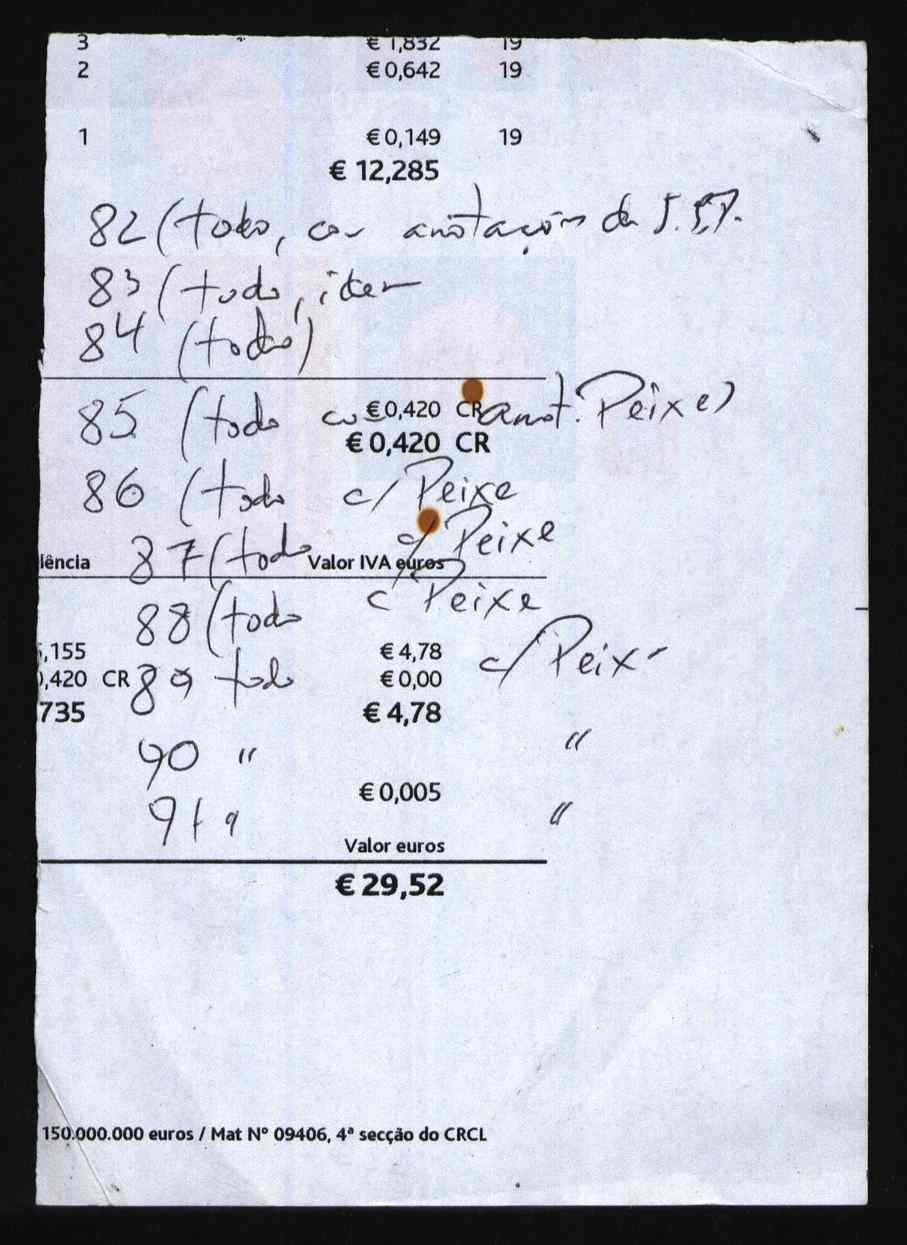 3 € 1,832 19
2 € 0,642 19
1 € 0,149 19
€ 12,285
82 (todo, com anotações de J.
83 (todo, idem
84 (todo)
85 (todo co € 0,420 CR anot. Peixe)
€ 0,420 CR
86 (todo c/ Peixe
87 (todo c/ Peixe
lência Valor IVA euros
88 (todo c/ Peixe
,155 € 4,78
89 todo c/ Peixe
,420 CR € 0,00
735 € 4,78
90 " "
€ 0,005
91 "
Valor euros
€ 29,52
150.000.000 euros / Mat Nº 09406, 4ª secção do CRCL